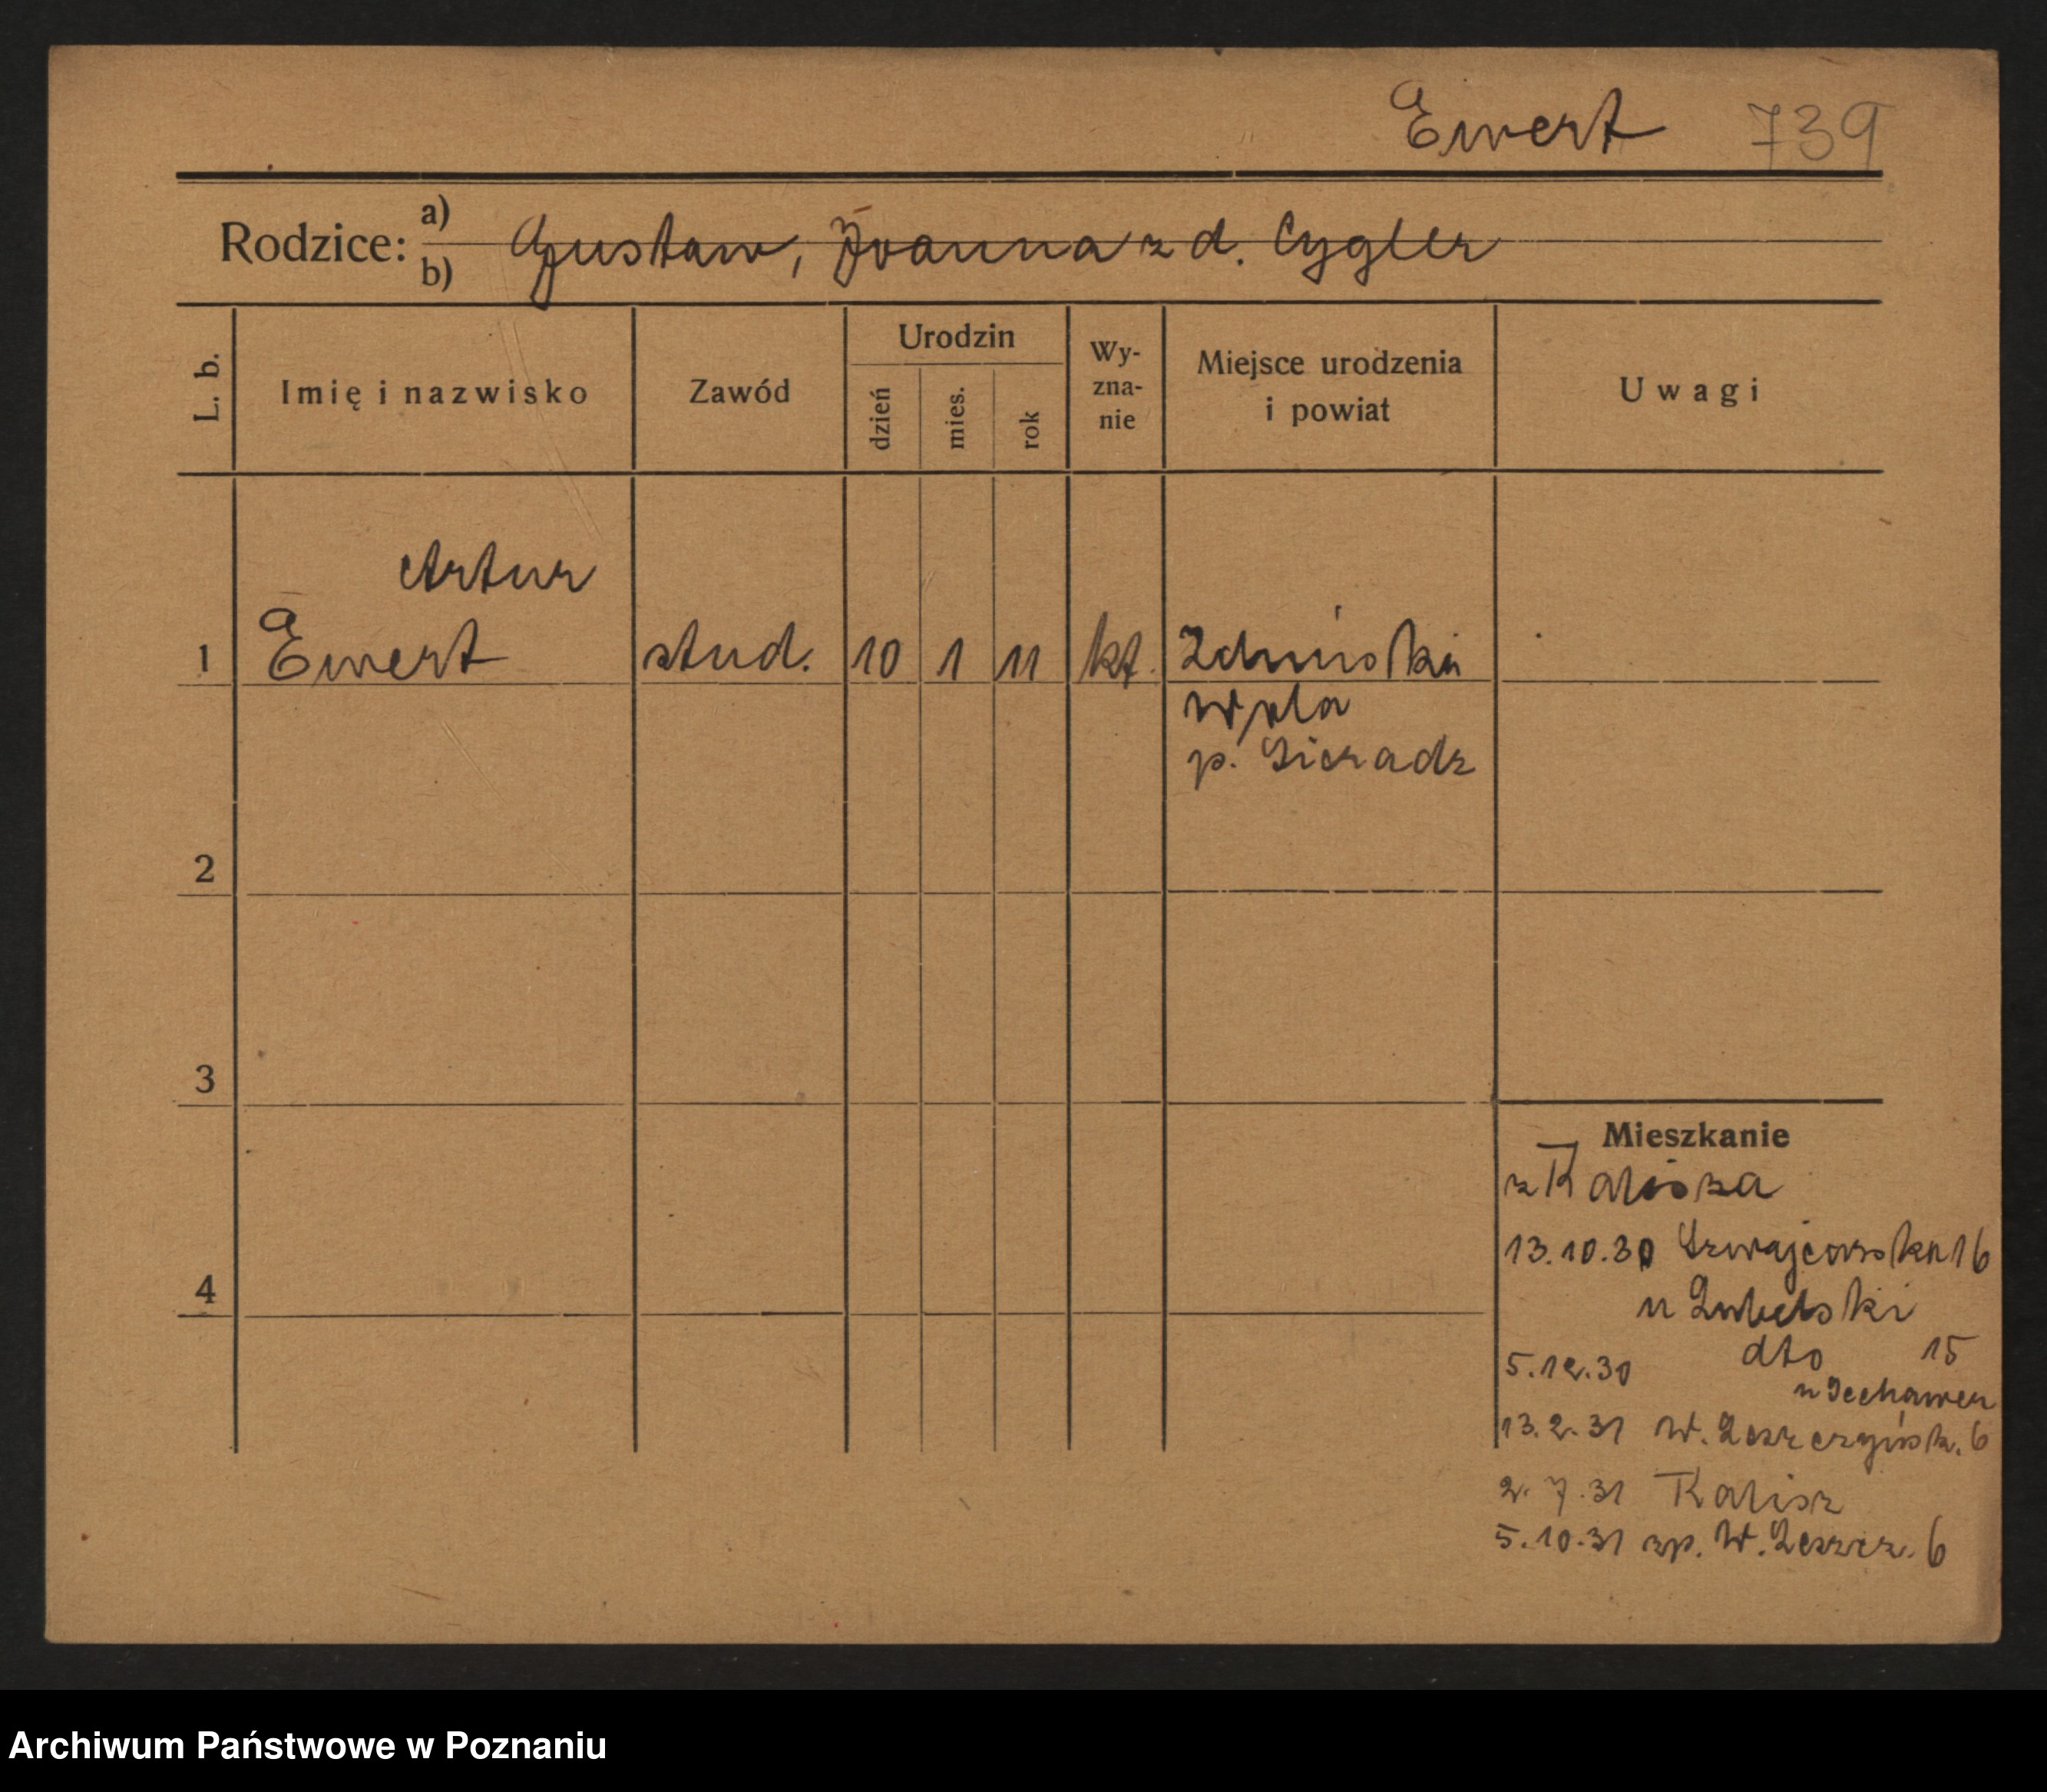 Ewert 739
Rodzice: a) b) Gustaw, Joanna z d. Cygler
L. b.
Imię i nazwisko
Zawód
Urodzin
dzień
mies.
rok
Wy-
zna-
nie
Miejsce urodzenia
i powiat
Uwagi
Artur
1 Ewert stud. 10 1 11 kt. Zduńska
Wola
p. Sieradz
2
3
Mieszkanie
z Kalisza
13.10.30 Szwajcarska 16
4
u Lubelski
5.12.30 dto 15
u
13.2.31 W. Leszczyńsk. 6
2.7.31 Kalisz
5.10.31 zp. W. Leszcz. 6
Archiwum Państwowe w Poznaniu